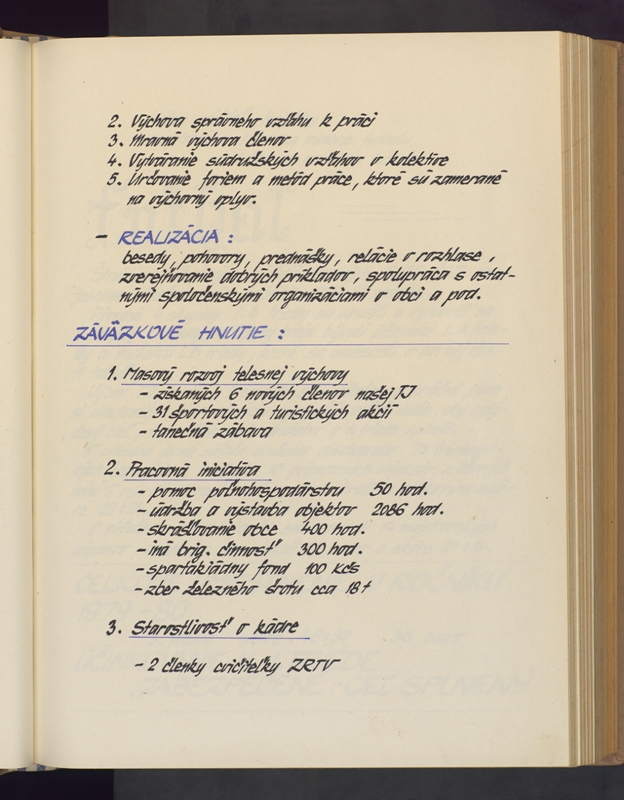 2. Výchova správneho vzťahu k práci
3. Mravná výchova členov
4. Vytváranie súdružských vzťahov v kolektíve
5. Určovanie foriem a metód práce, ktoré sú zamerané
na výchovný vplyv.
– REALIZÁCIA :
besedy, pohovory, prednášky, relácie v rozhlase,
zverejňovanie dobrých príkladov, spolupráca s ostat-
nými spoločenskými organizáciami v obci a pod.
ZÁVÄZKOVÉ HNUTIE :
1. Masový rozvoj telesnej výchovy
– získaných 6 nových členov našej TJ
– 31 športových a turistických akcií
– tanečná zábava
2. Pracovná iniciatíva
– pomoc poľnohospodárstvu 50 hod.
– údržba a výstavba objektov 2086 hod.
– skrášľovanie obce 400 hod.
– iná brig. činnosť 300 hod.
– spartakiádny fond 100 Kčs
– zber železného šrotu cca 18 t
3. Starostlivosť o kádre
– 2 členky cvičiteľky ZRTV